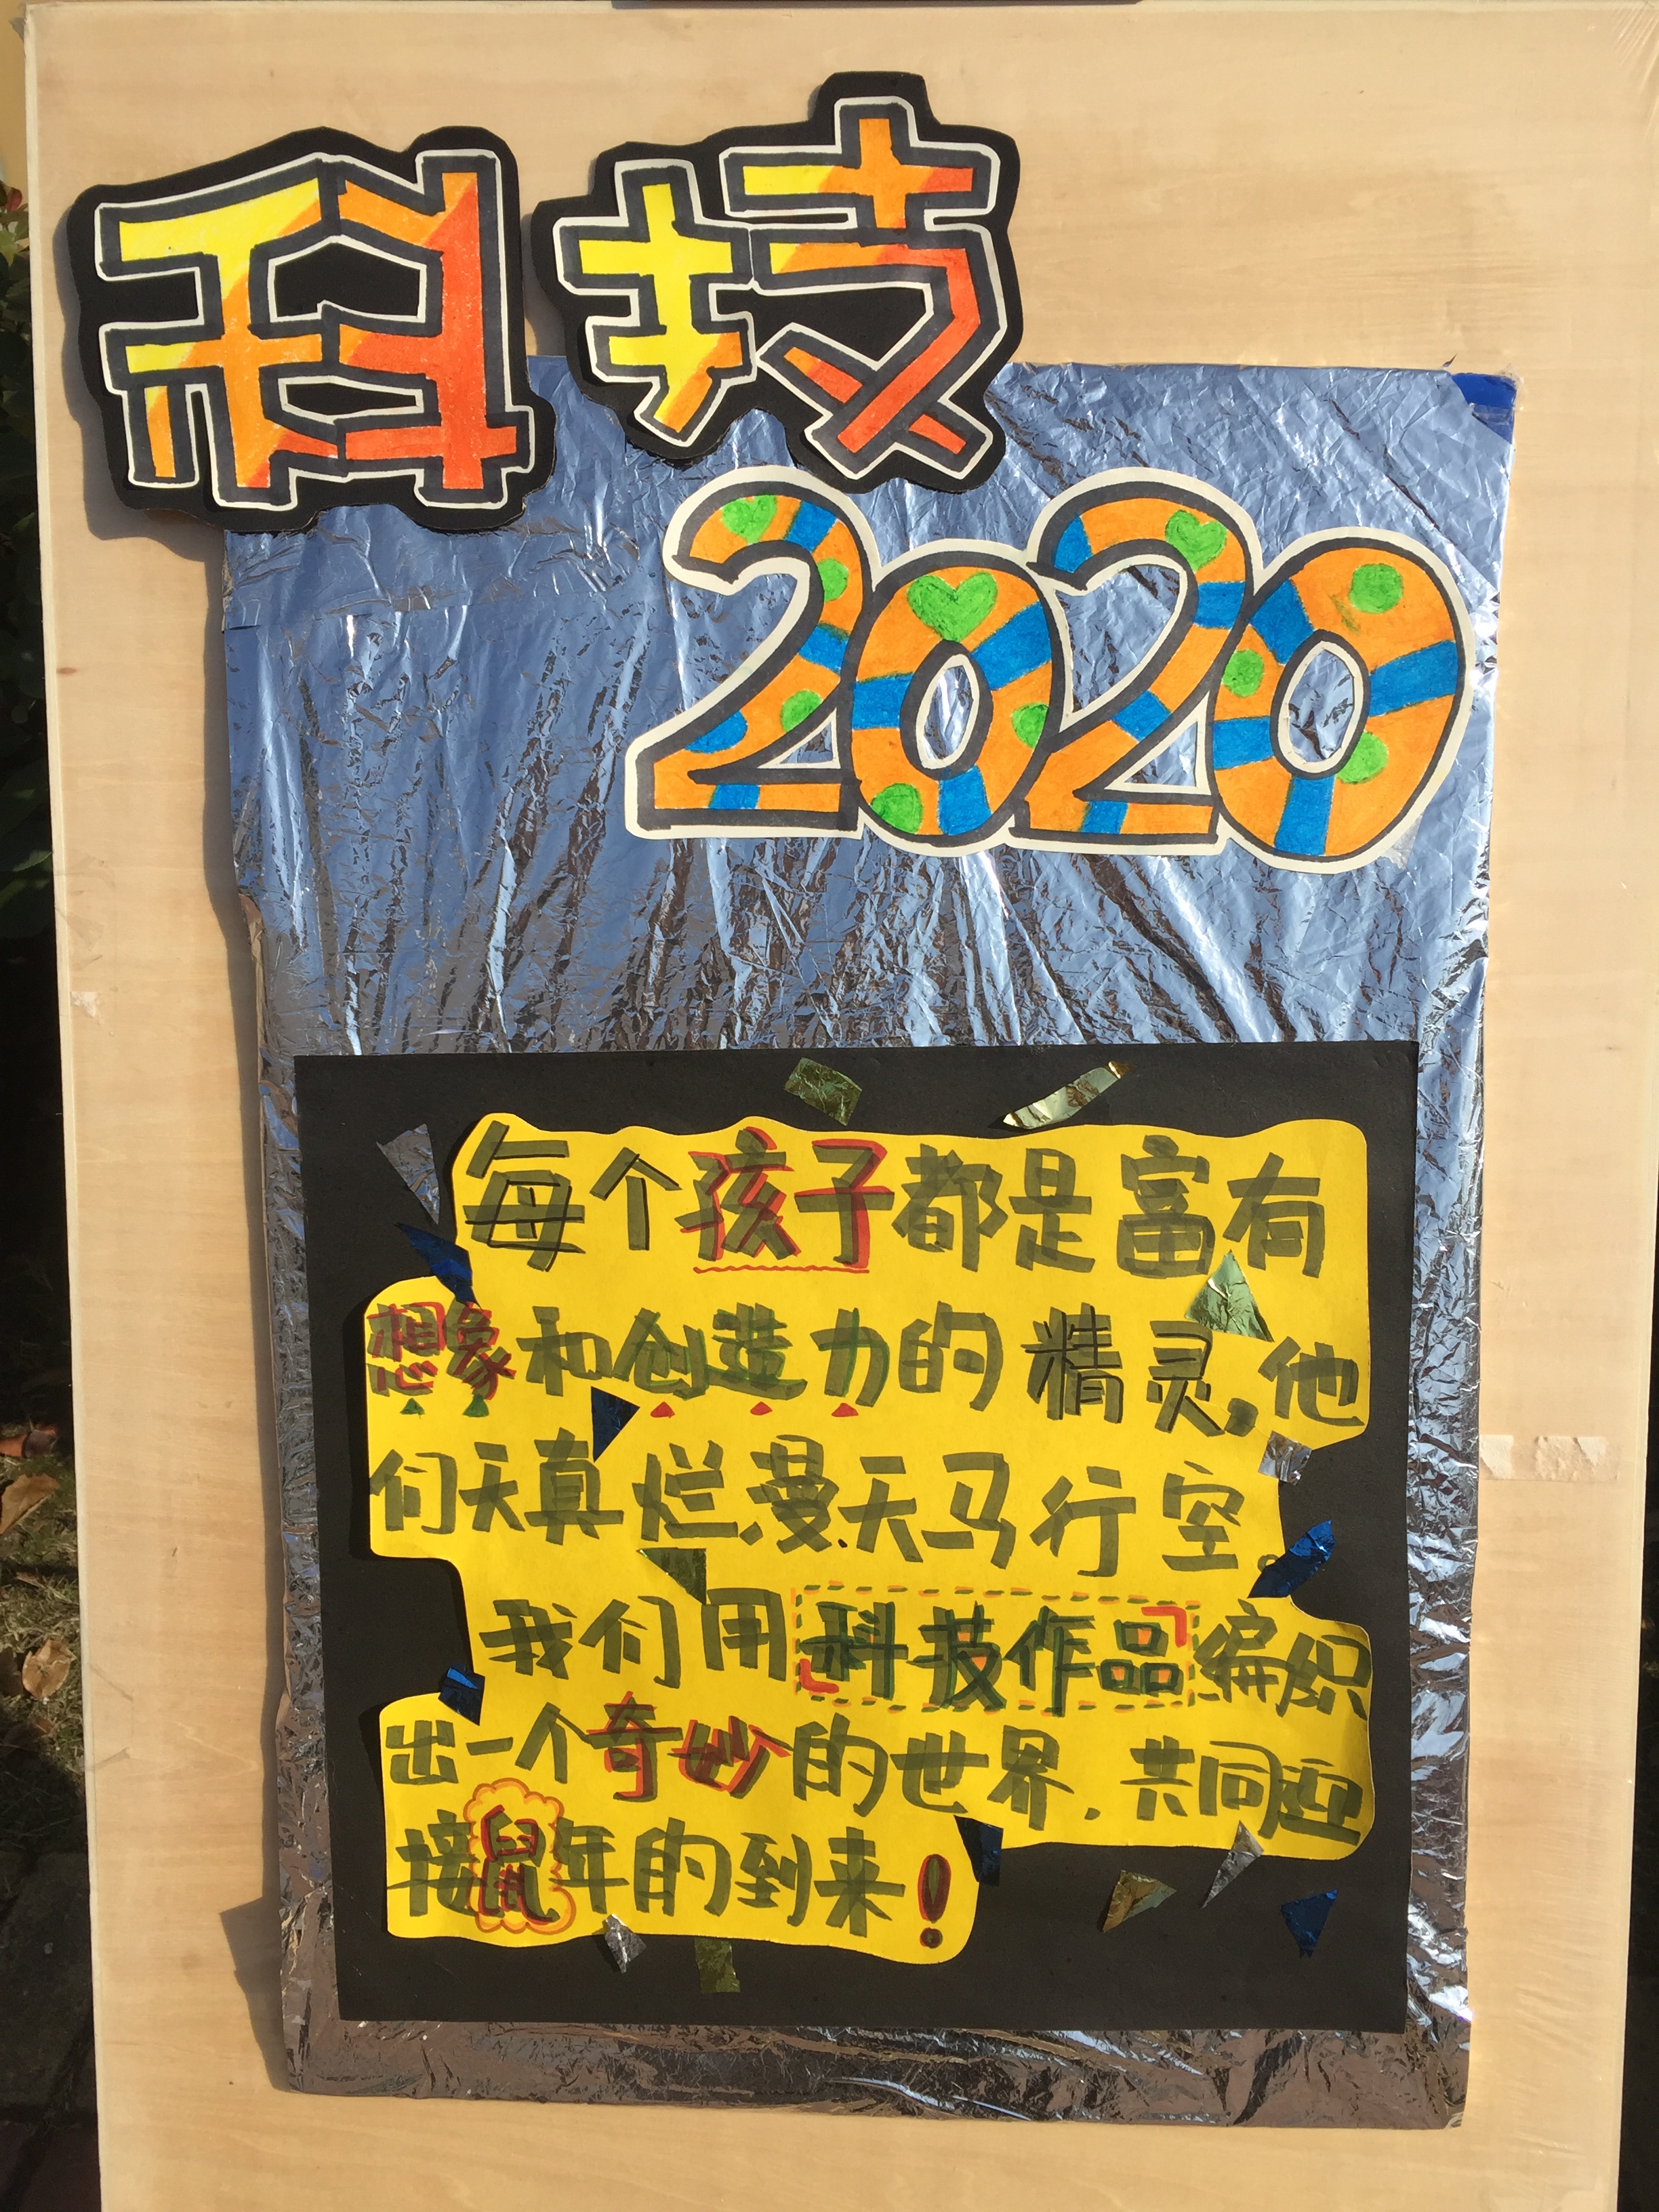 科技
2020
每个孩子都是富有
想象和创造力的精灵,他
们天真烂漫天马行空。
我们用科技作品编织
出一个奇妙的世界,共同迎
接鼠年的到来!